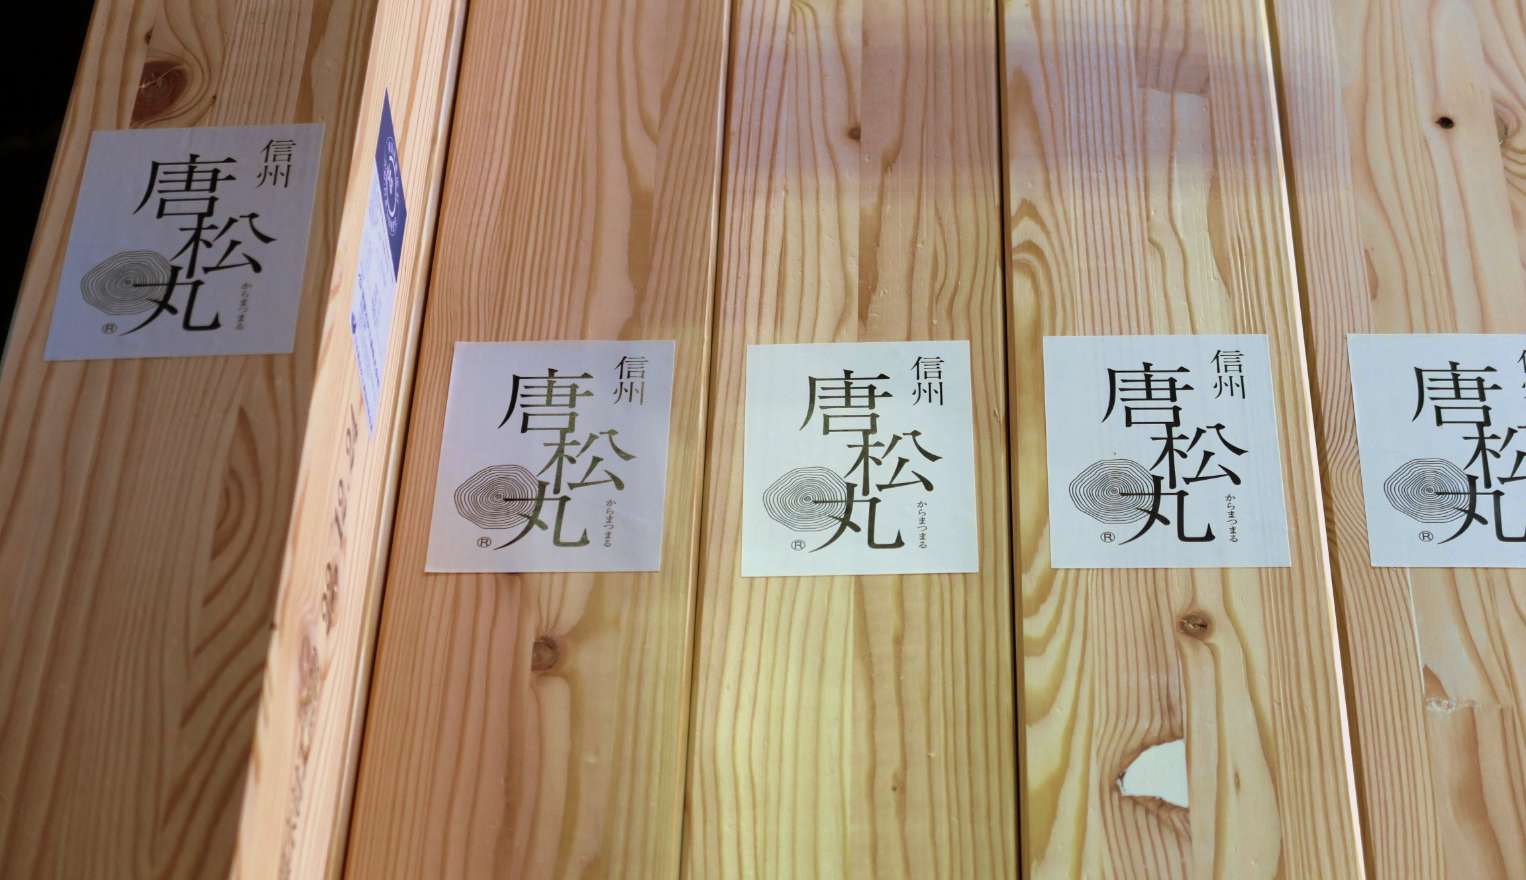 信州
唐松丸
からまつまる
®
信州
唐松丸
からまつまる
®
信州
唐松丸
からまつまる
®
信州
唐松丸
からまつまる
®
唐松丸
®